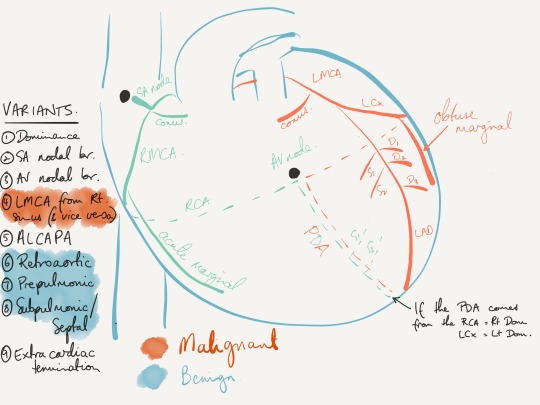 VARIANTS.
① Dominance
② SA nodal br.
③ AV nodal br.
④ LMCA from Rt.
sinus (& vice versa)
⑤ ALCAPA
⑥ Retroaortic
⑦ Prepulmonic
⑧ Subpulmonic/
Septal
⑨ Extra cardiac
termination
SA node
conus.
RMCA.
RCA
acute marginal
AV node.
PDA
S'1 S'2
LMCA
conus.
LCx
Obtuse
marginal
D1
D2
D3
S1
S2
LAD
If the PDA comes
from the RCA = Rt Dom
LCx = Lt Dom.
Malignant
Benign